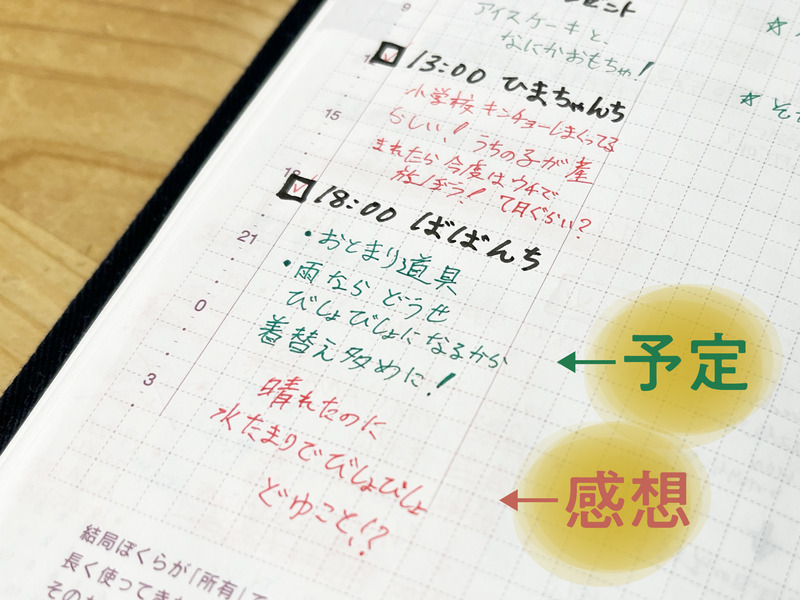 9
アイスケーキと、
なにかおもちゃ!
13:00 ひまちゃんち
小学校 キンチョーしまくってる
らしい! うちの子が産
15
まれたら今度はウチで
18:00 ばばんち
・おとまり道具
21
・雨なら どうせ
びしょびしょになるから
0
着替え多めに!
←予定
3
晴れたのに
水たまりでびしょびしょ
どゆこと!?
←感想
結局ぼくらが「所有」て
長く使ってき